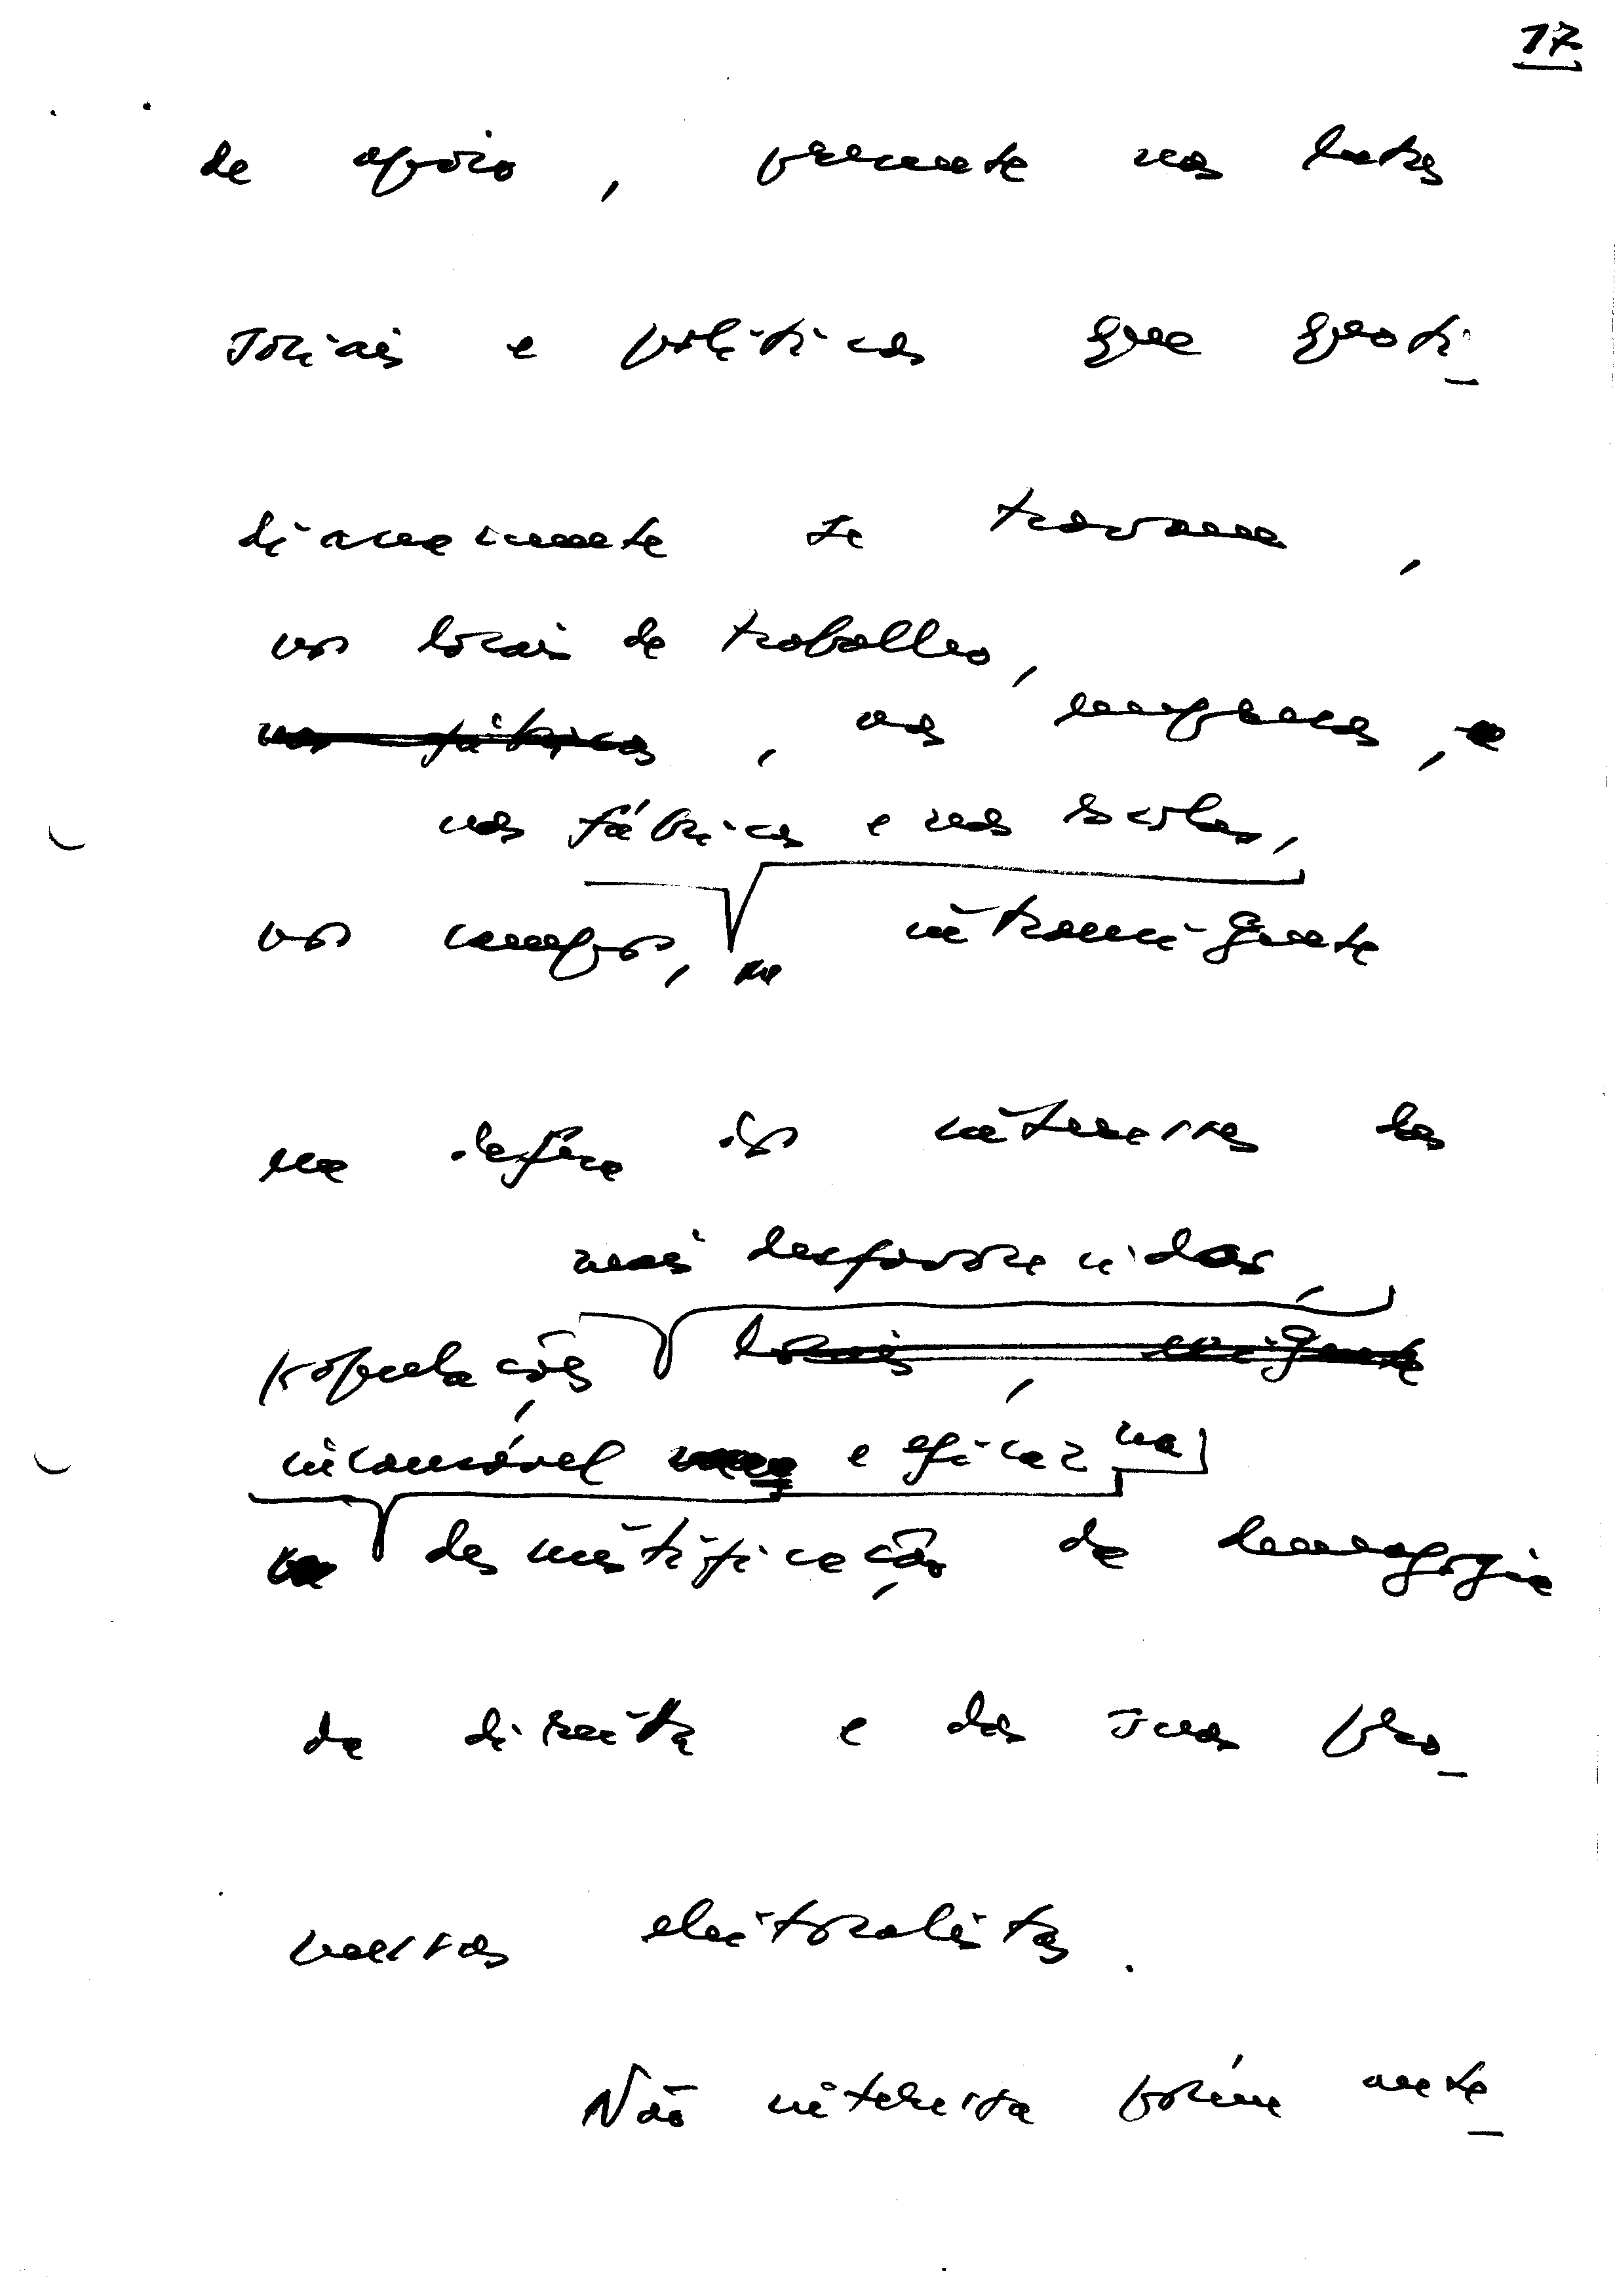 17
de apoio, presente nas lutas
sociais e políticas que quoti_
dianamente se travam,
nos locais de trabalho,
nas fábricas, nas empresas,
nas fábricas e nas escolas,
nos campos, intransigente
na defesa dos interesses das
mais desfavorecidas,
populações locais, exigente
incansável e eficaz na
desmistificação da demagogia
da direita e das suas pro_
messas eleitoralistas.
Não interessa porém ante_